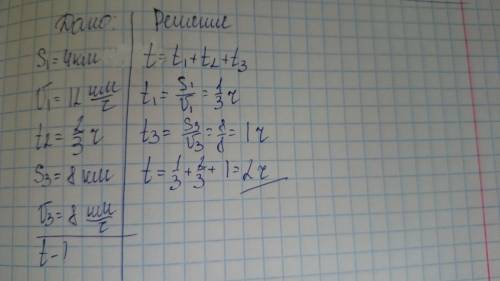 Дано:
S₁=4км
V₁=12 км/ч
t₂=2/3 ч
S₃=8 км
V₃=8 км/ч
t-?
Решение
t=t₁+t₂+t₃
t₁=S₁/V₁=1/3 ч
t₃=S₃/V₃=8/8=1ч
t=1/3+2/3+1=2ч